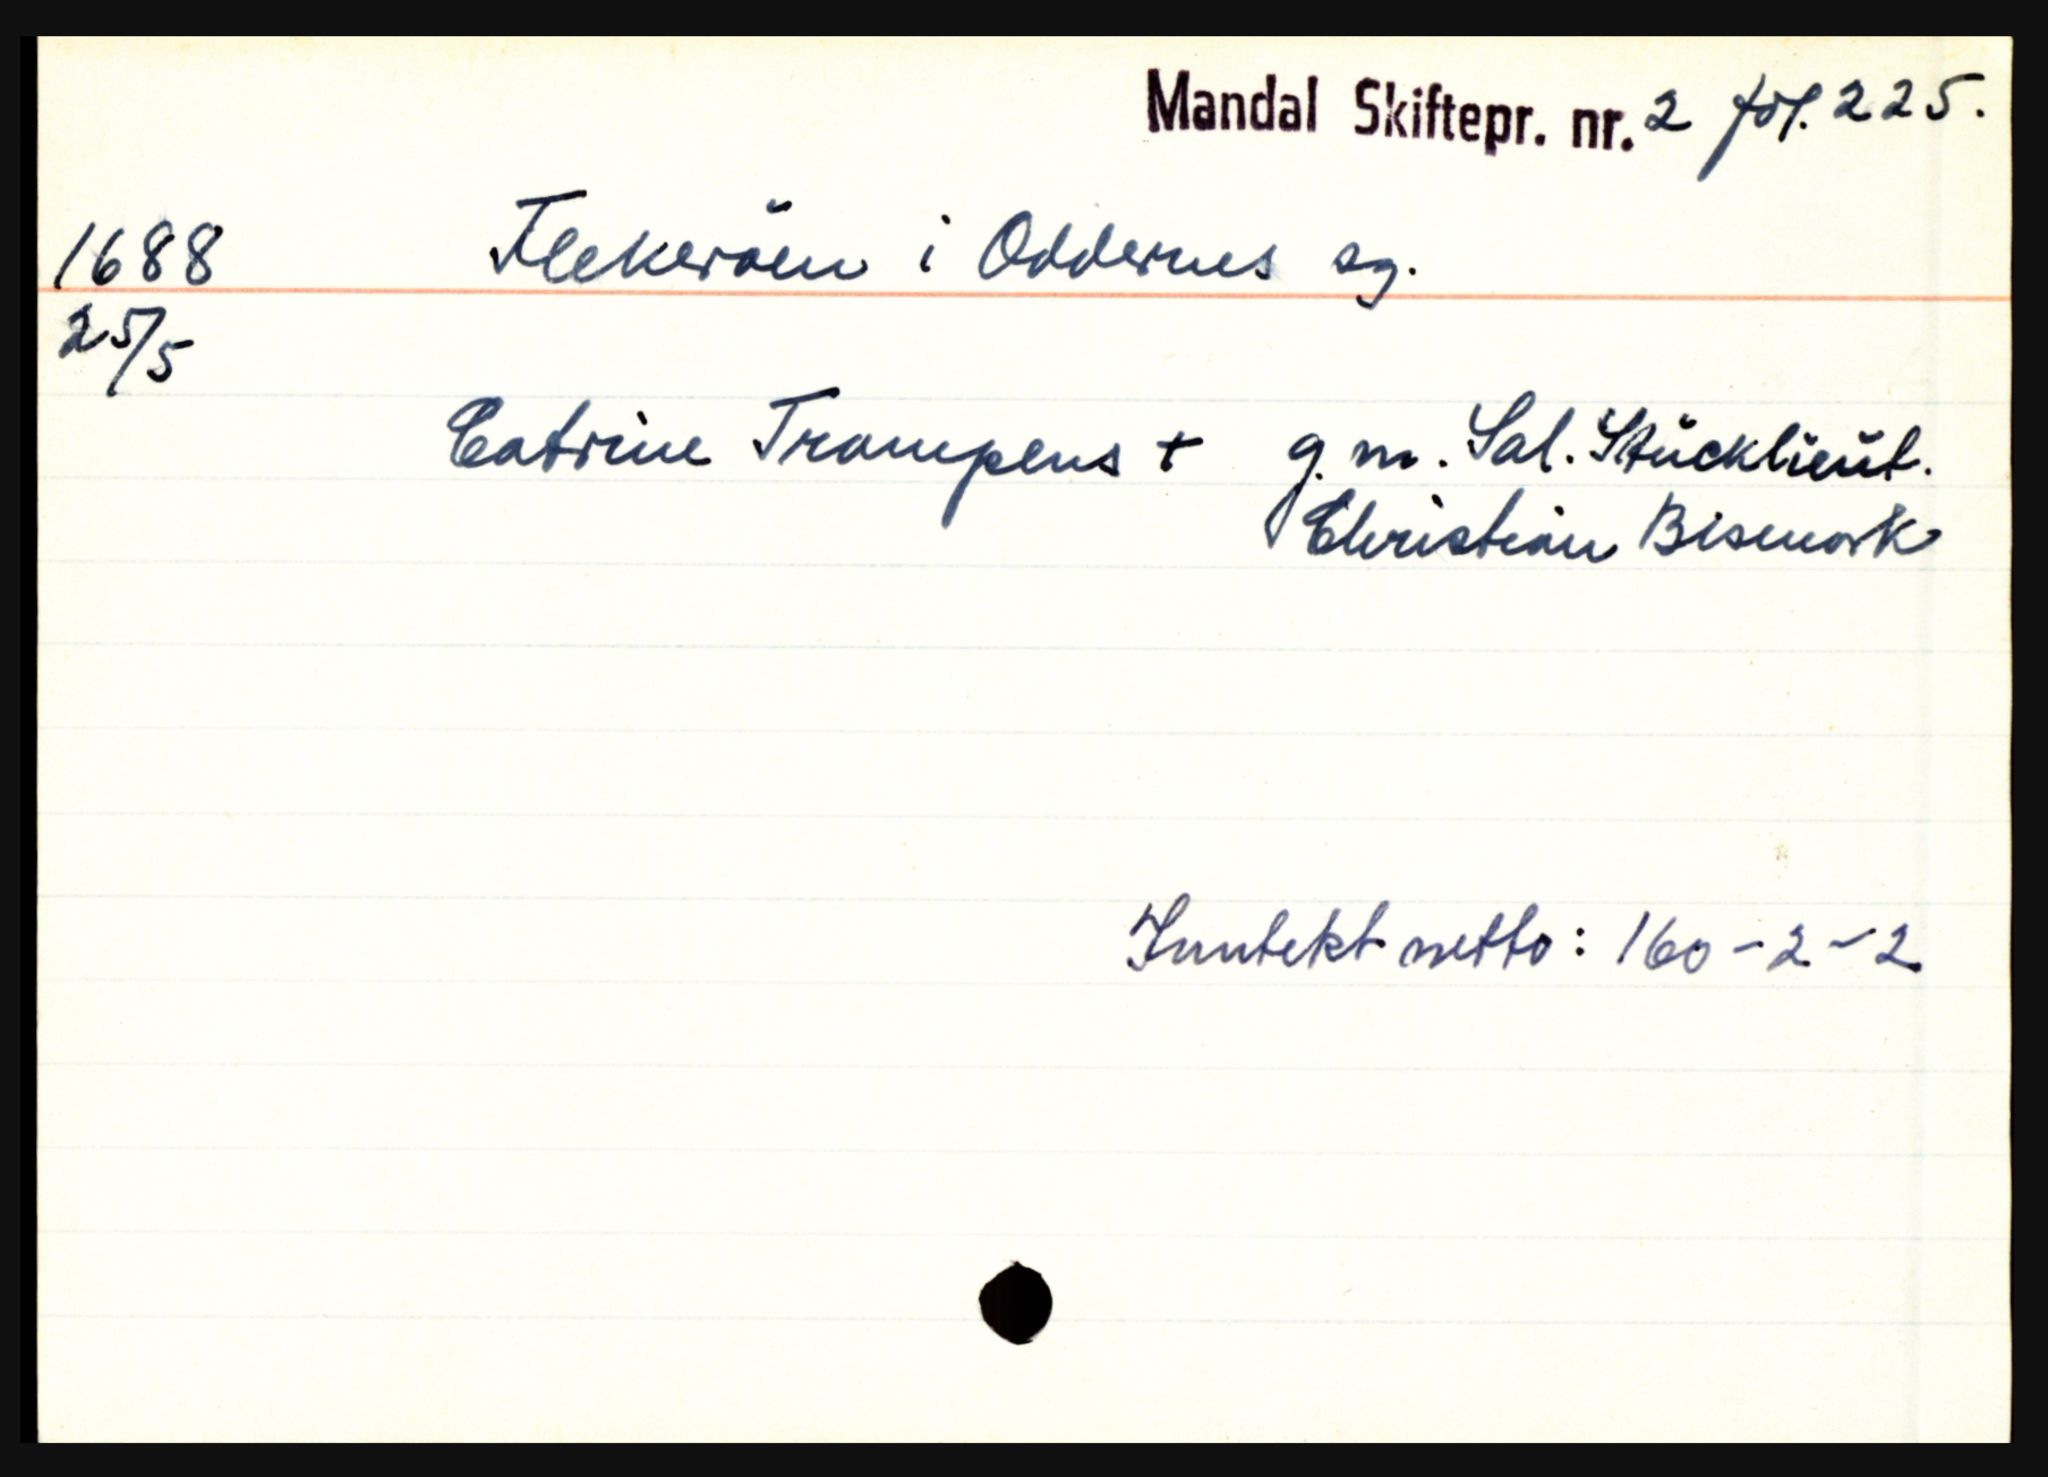 Mandal Skiftepr. nr. 2 fol. 225.
1688 Flekeröen i Oddernes sg.
25/5
Catrine Trampens + g. m. Sal. Stücklieut.
Christian Bismark
Inntekt netto: 160 - 2 - 2